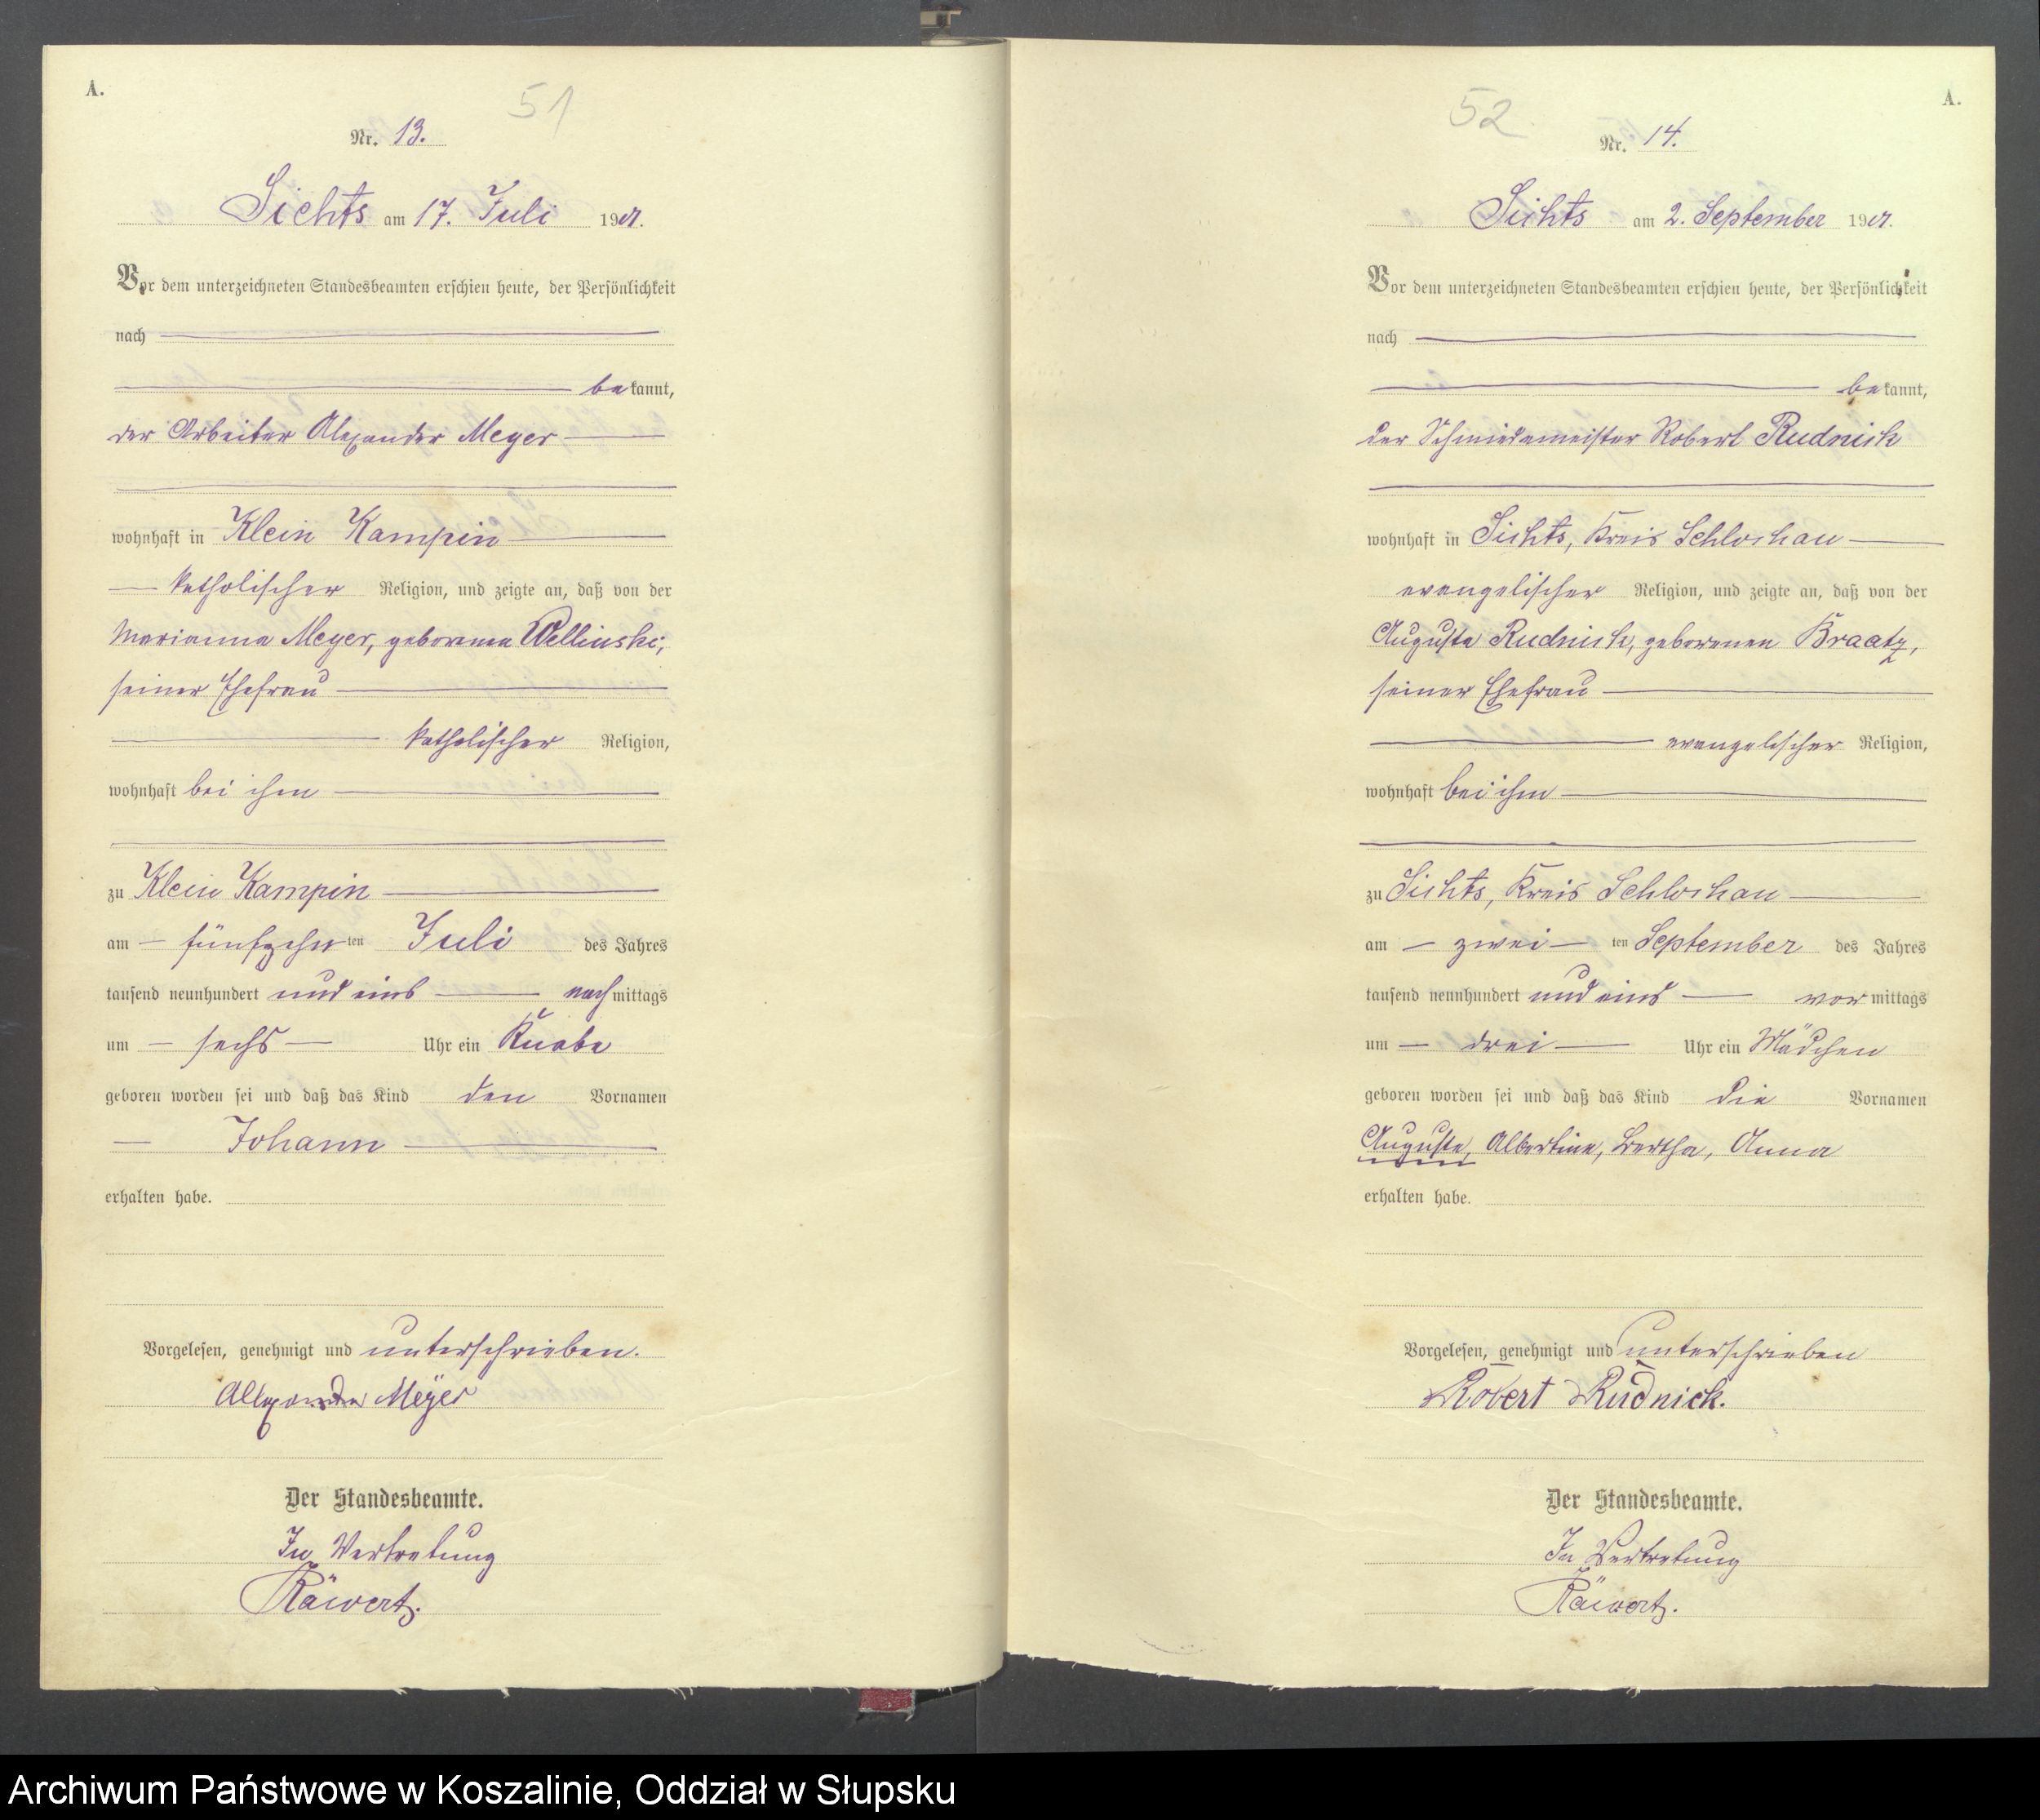 A.
51
Nr. 13.
Sichts am 17. Juli 1901.
Vor dem unterzeichneten Standesbeamten erschien heute, der Persönlichkeit
nach
bekannt,
der Arbeiter Alexander Meyer
wohnhaft in Klein Kampin
katholischer Religion, und zeigte an, daß von der
Marianna Meyer, geborenen Wellinski,
seiner Ehefrau
katholischer Religion,
wohnhaft bei ihm
zu Klein Kampin
am fünfzehnten Juli des Jahres
tausend neunhundert und eins nachmittags
um sechs Uhr ein Knabe
geboren worden sei und daß das Kind den Vornamen
Johann
erhalten habe.
Vorgelesen, genehmigt und unterschrieben.
Allexander Meÿer
Der Standesbeamte.
In Vertretung
Räwertz.
A.
52
Nr. 14.
Sichts am 2. September 1901.
Vor dem unterzeichneten Standesbeamten erschien heute, der Persönlichkeit
nach
bekannt,
der Schmiedemeister Robert Rudnick
wohnhaft in Sichts, Kreis Schlochau
evangelischer Religion, und zeigte an, daß von der
Auguste Rudnick, geborenen Braatz,
seiner Ehefrau
evangelischer Religion,
wohnhaft bei ihm
zu Sichts, Kreis Schlochau
am zweiten September des Jahres
tausend neunhundert und eins vormittags
um drei Uhr ein Mädchen
geboren worden sei und daß das Kind die Vornamen
Auguste, Albertine, Bertha, Anna
erhalten habe.
Vorgelesen, genehmigt und unterschrieben
Robert Rudnick.
Der Standesbeamte.
In Vertretung
Räwertz.
Archiwum Państwowe w Koszalinie, Oddział w Słupsku